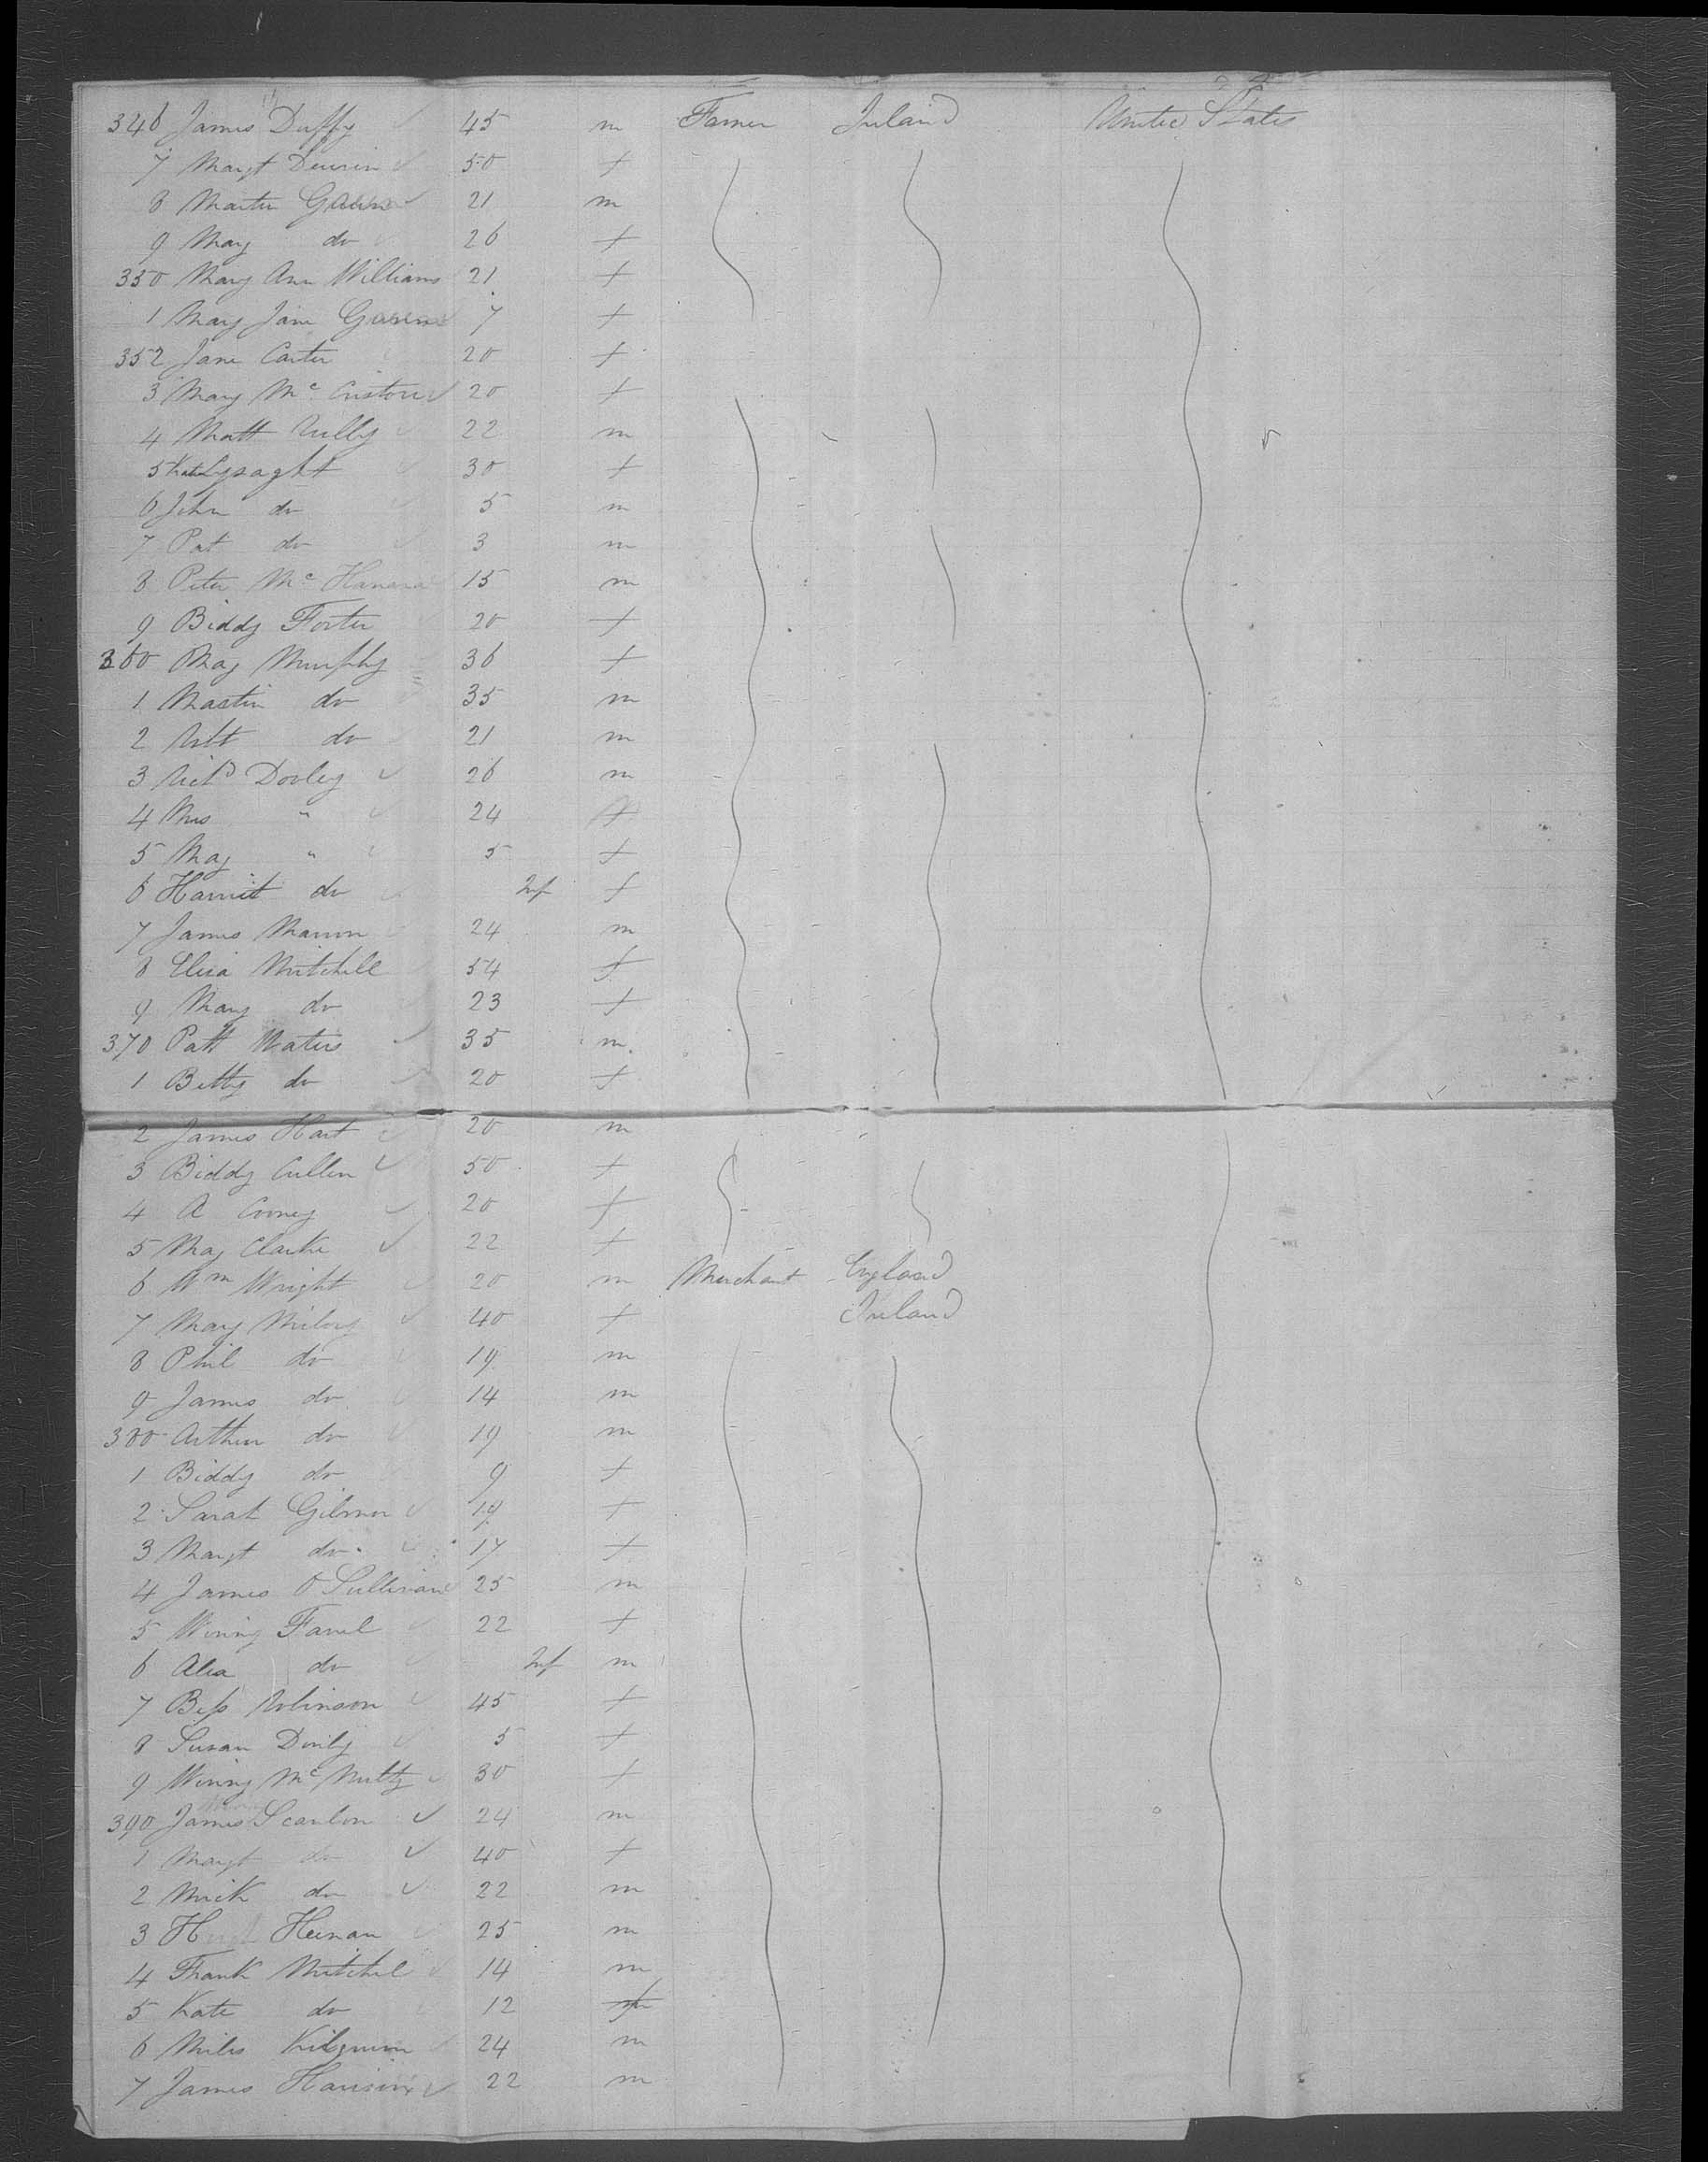 346 James Duffy 45 m Farmer Ireland United States
7 Margt 50 f
8 Martin 21 m
9 Mary do 26 f
350 Mary Ann Williams 21 f
1 Mary Jane 7 f
352 Jane Carter 20 f
3 Mary Mc 20 f
4 Matt 22 m
5 Kate Lysaght 30 f
6 John do 5 m
7 Pat do 3 m
8 Peter Mc 15 m
9 Biddy Foster 20 f
360 May Murphy 36 f
1 Martin do 35 m
2 do 21 m
3 Richd Dooley 26 m
4 Mrs " 24 f
5 May " 5 f
6 Harriet do Inf f
7 James 24 m
8 Eliza Mitchell 54 f
9 Mary do 23 f
370 Patt Waters 35 m
1 Betty do 20 f
2 James Hart 20 m
3 Biddy Cullen 50 f
4 A Cooney 20 f
5 May Clarke 22 f
6 Wm Wright 20 m Merchant England
7 Mary 40 f Ireland
8 Phil do 19 m
9 James do 14 m
380 Arthur do 19 m
1 Biddy do 9 f
2 Sarah Gilmor 19 f
3 Margt do 17 f
4 James O Sullivan 25 m
5 Winny 22 f
6 do Inf m
7 Bess Robinson 45 f
8 Susan 5 f
9 Winny Mc Nulty 30 f
390 James Scanlon 24 m
1 Margt do 40 f
2 Mick do 22 m
3 Heenan 25 m
4 Frank Mitchel 14 m
5 Kate do 12 f
6 Miles 24 m
7 James 22 m